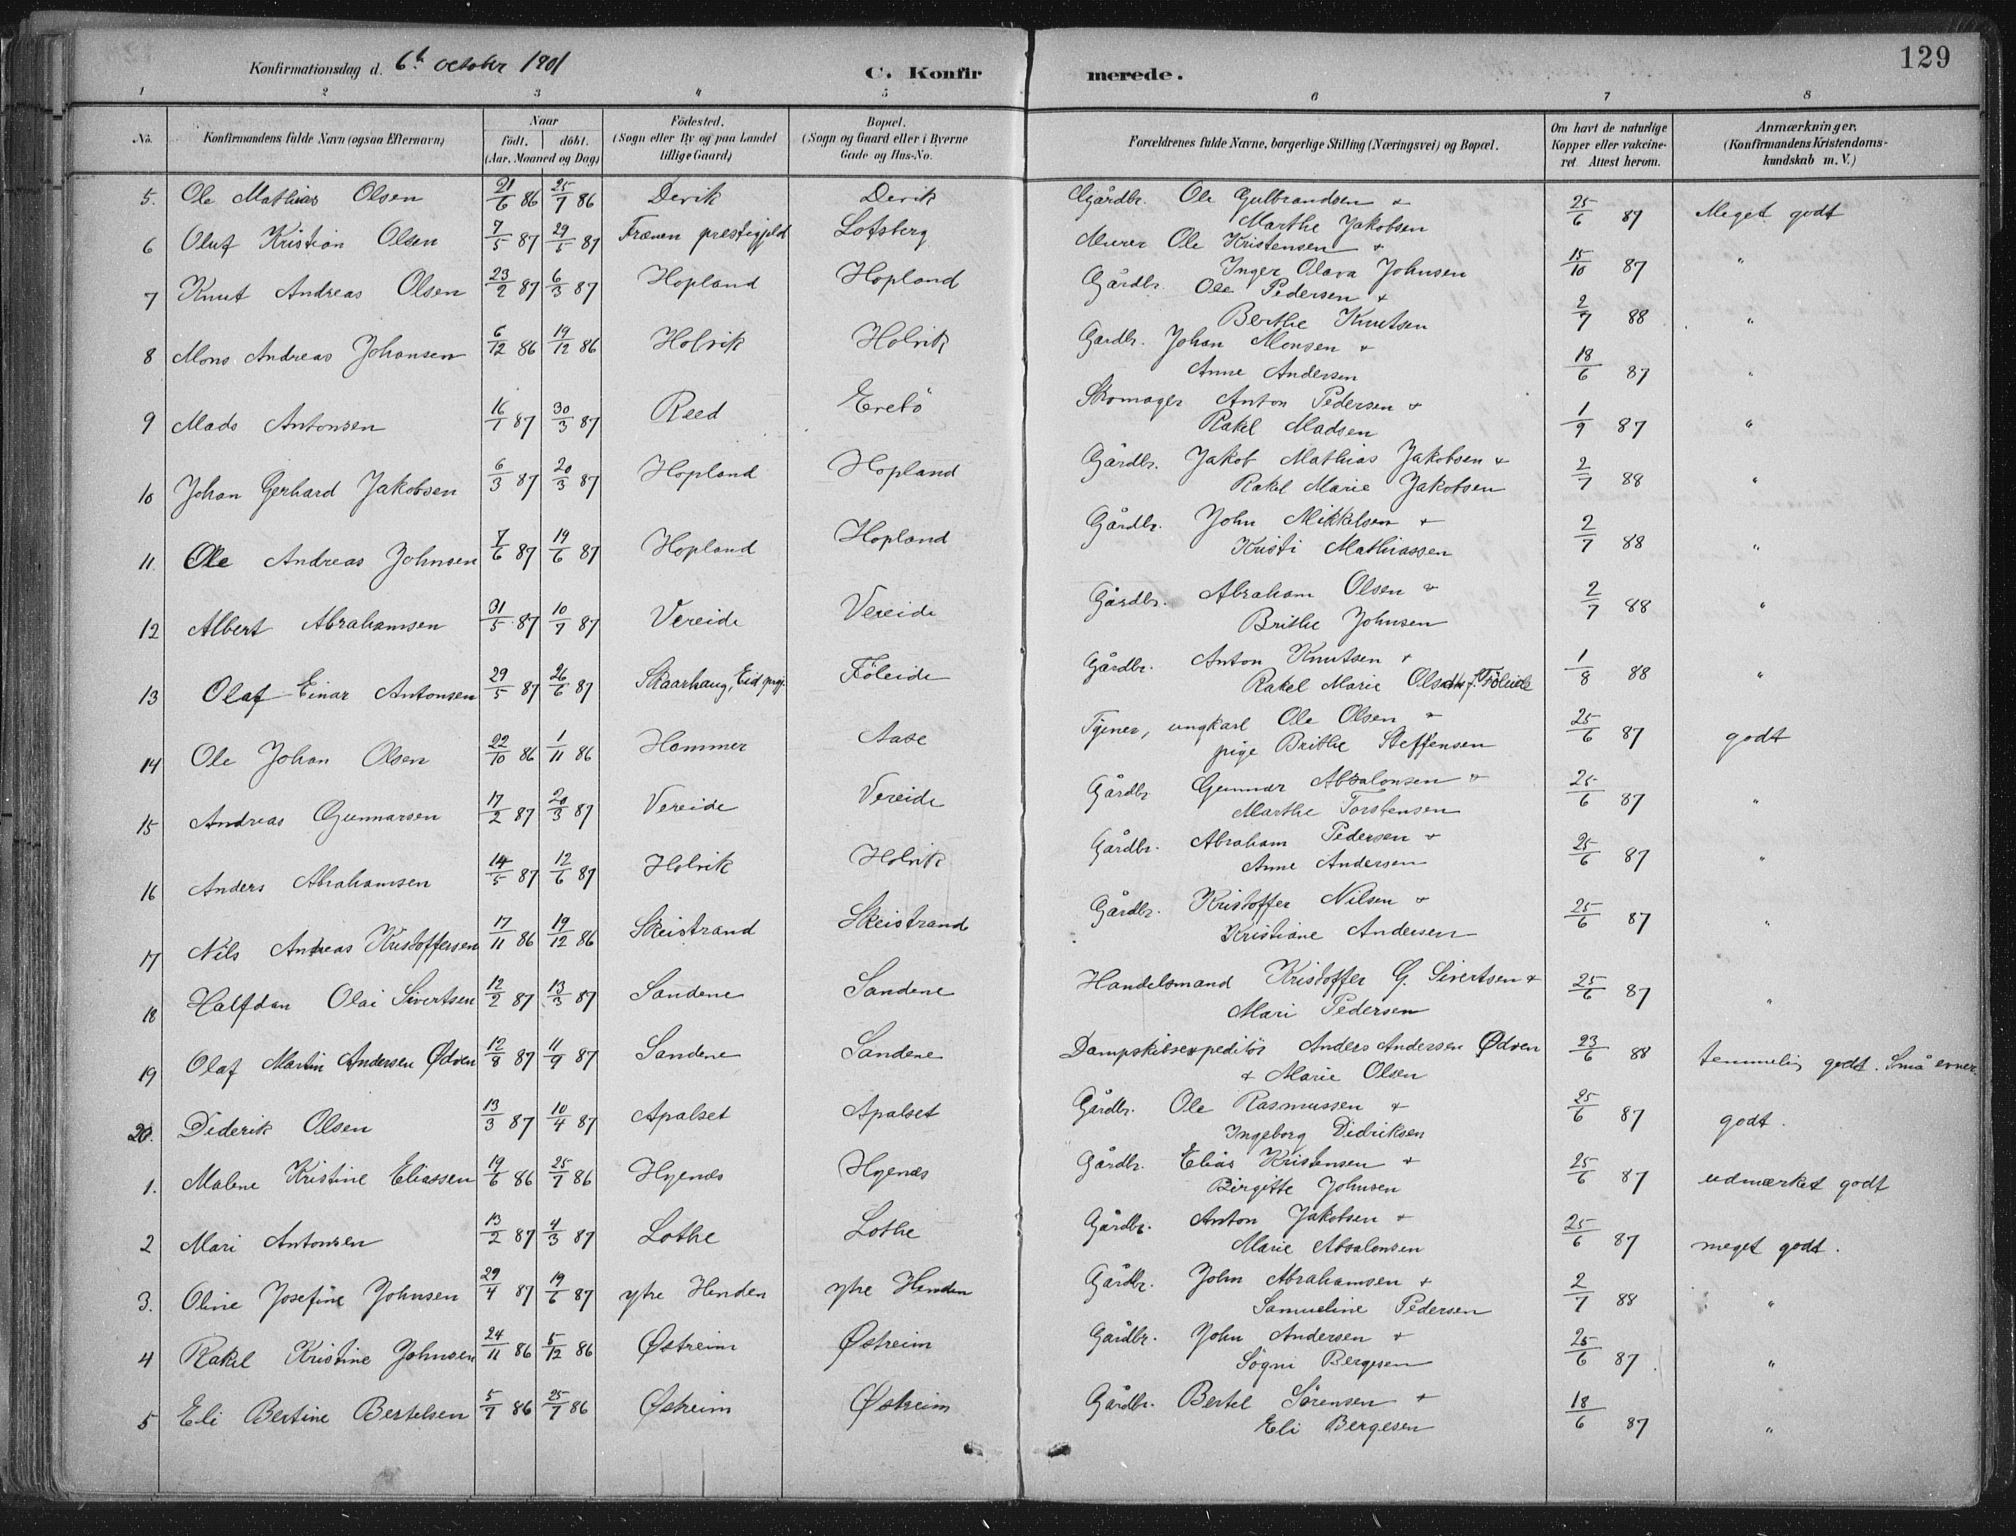 129
Konfirmationsdag d. 6te october 1901
C. Konfirmerede.
1 2 3 4 5 6 7 8
No. | Konfirmandens fulde Navn (ogsaa Efternavn) | Naar födt. | döbt. (Aar. Maaned og Dag) | Födested. (Sogn eller By og paa Landet tillige Gaard) | Bopæl. (Sogn og Gaard eller i Byerne Gade og Hus-No. | Forældrenes fulde Navne, borgerlige Stilling (Næringsvei) og Bopæl. | Om havt de naturlige Kopper eller vakcineret. Attest herom. | Anmærkninger. (Konfirmandens Kristendomskundskab m. V.)
5. Ole Mathias Olsen 21/6 86 25/7 86 Devik Devik Gårdbr. Ole Gulbrandsen + Marthe Jakobsen 25/6 87 Meget godt
6 Oluf Kristian Olsen 7/5 87 29/5 87 Frænen prestegjeld Lotsberg Murer Ole Kristensen + Inger Olava Johnsen 15/10 87 "
7 Knut Andreas Olsen 23/2 87 6/3 87 Hopland Hopland Gårdbr. Ole Pedersen + Berthe Knutsen 2/7 88 "
8 Mons Andreas Johansen 6/12 86 19/12 86 Holvik Holvik Gardbr. Johan Monsen + Anne Andersen 18/6 87 "
9 Mads Antonsen 16/1 87 30/3 87 Reed Evebö Skomager Anton Pedersen + Rakel Madsen 1/9 87 "
10 Johan Gerhard Jakobsen 6/3 87 20/3 87 Hopland Hopland Gårdbr. Jakob Mathias Jakobsen + Rakel Marie Jakobsen 2/7 88 "
11. Ole Andreas Johnsen 7/6 87 19/6 87 Hopland Hopland Gårdbr. John Mikkelsen + Kristi Mathiassen 2/7 88 "
12 Albert Abrahamsen 31/5 87 10/7 87 Vereide Vereide Gårdbr. Abraham Olsen + Brithe Johnsen 2/7 88 "
13 Olaf Einar Antonsen 29/5 87 26/6 87 Skaarhaug, Eid prgj. Föleide Gårdbr. Anton Knutsen + Rakel Marie Olsdtr f. Föleide 1/8 88 "
14 Ole Johan Olsen 22/10 86 1/11 86 Hammer Aase Tjener, ungkarl Ole Olsen + pige Brithe Steffensen 25/6 87 godt
15 Andreas Gunnarsen 17/2 87 20/3 87 Vereide Vereide Gårdbr Gunnar Absalonsen + Marthe Torstensen 25/6 87 "
16 Anders Abrahamsen 14/5 87 12/6 87 Holvik Holvik Gårdbr. Abraham Pedersen + Anne Andersen 25/6 87 "
17 Nils Andreas Kristoffersen 17/11 86 19/12 86 Skeistrand Skeistrand Gårdbr. Kristoffer Nilsen + Kristiane Andersen 25/6 87 "
18 Halfdan Olai Sivertsen 12/2 87 13/3 87 Sandene Sandene Handelsmand Kristoffer G. Sivertsen + Mari Pedersen 25/6 87 "
19 Olaf Martin Andersen Ødven 12/8 87 11/9 87 Sandene Sandene Dampskibsexpeditör Anders Andersen Ødven + Marie Olsen 23/6 88 temmelig godt. Små evner.
20. Diderik Olsen 13/3 87 10/4 87 Apalset Apalset Gårdbr. Ole Rasmussen + Ingeborg Didriksen 25/6 87 godt.
1. Malene Kristine Eliassen 19/6 86 25/7 86 Hyenæs Hyenæs Gårdbr. Elias Kristensen + Birgitte Johnsen 25/6 87 udmærket godt
2 Mari Antonsen 13/2 87 4/3 87 Lothe Lothe Gårdbr. Anton Jakobsen + Marie Absalonsen 25/6 87 meget godt.
3. Oline Josefine Johnsen 29/4 87 19/6 87 ytre Henden ytre Henden Gårdbr. John Abrahamsen + Samueline Pedersen 2/7 88 "
4 Rakel Kristine Johnsen 24/11 86 5/12 86 Østreim Østreim Gårdbr. John Andersen + Sögni Bergesen 25/6 87. "
5 Eli Bertine Bertelsen 5/7 86 25/7 86 Østreim Østreim Gårdbr. Bertel Sörensen + Eli Bergesen 18/6 87 "